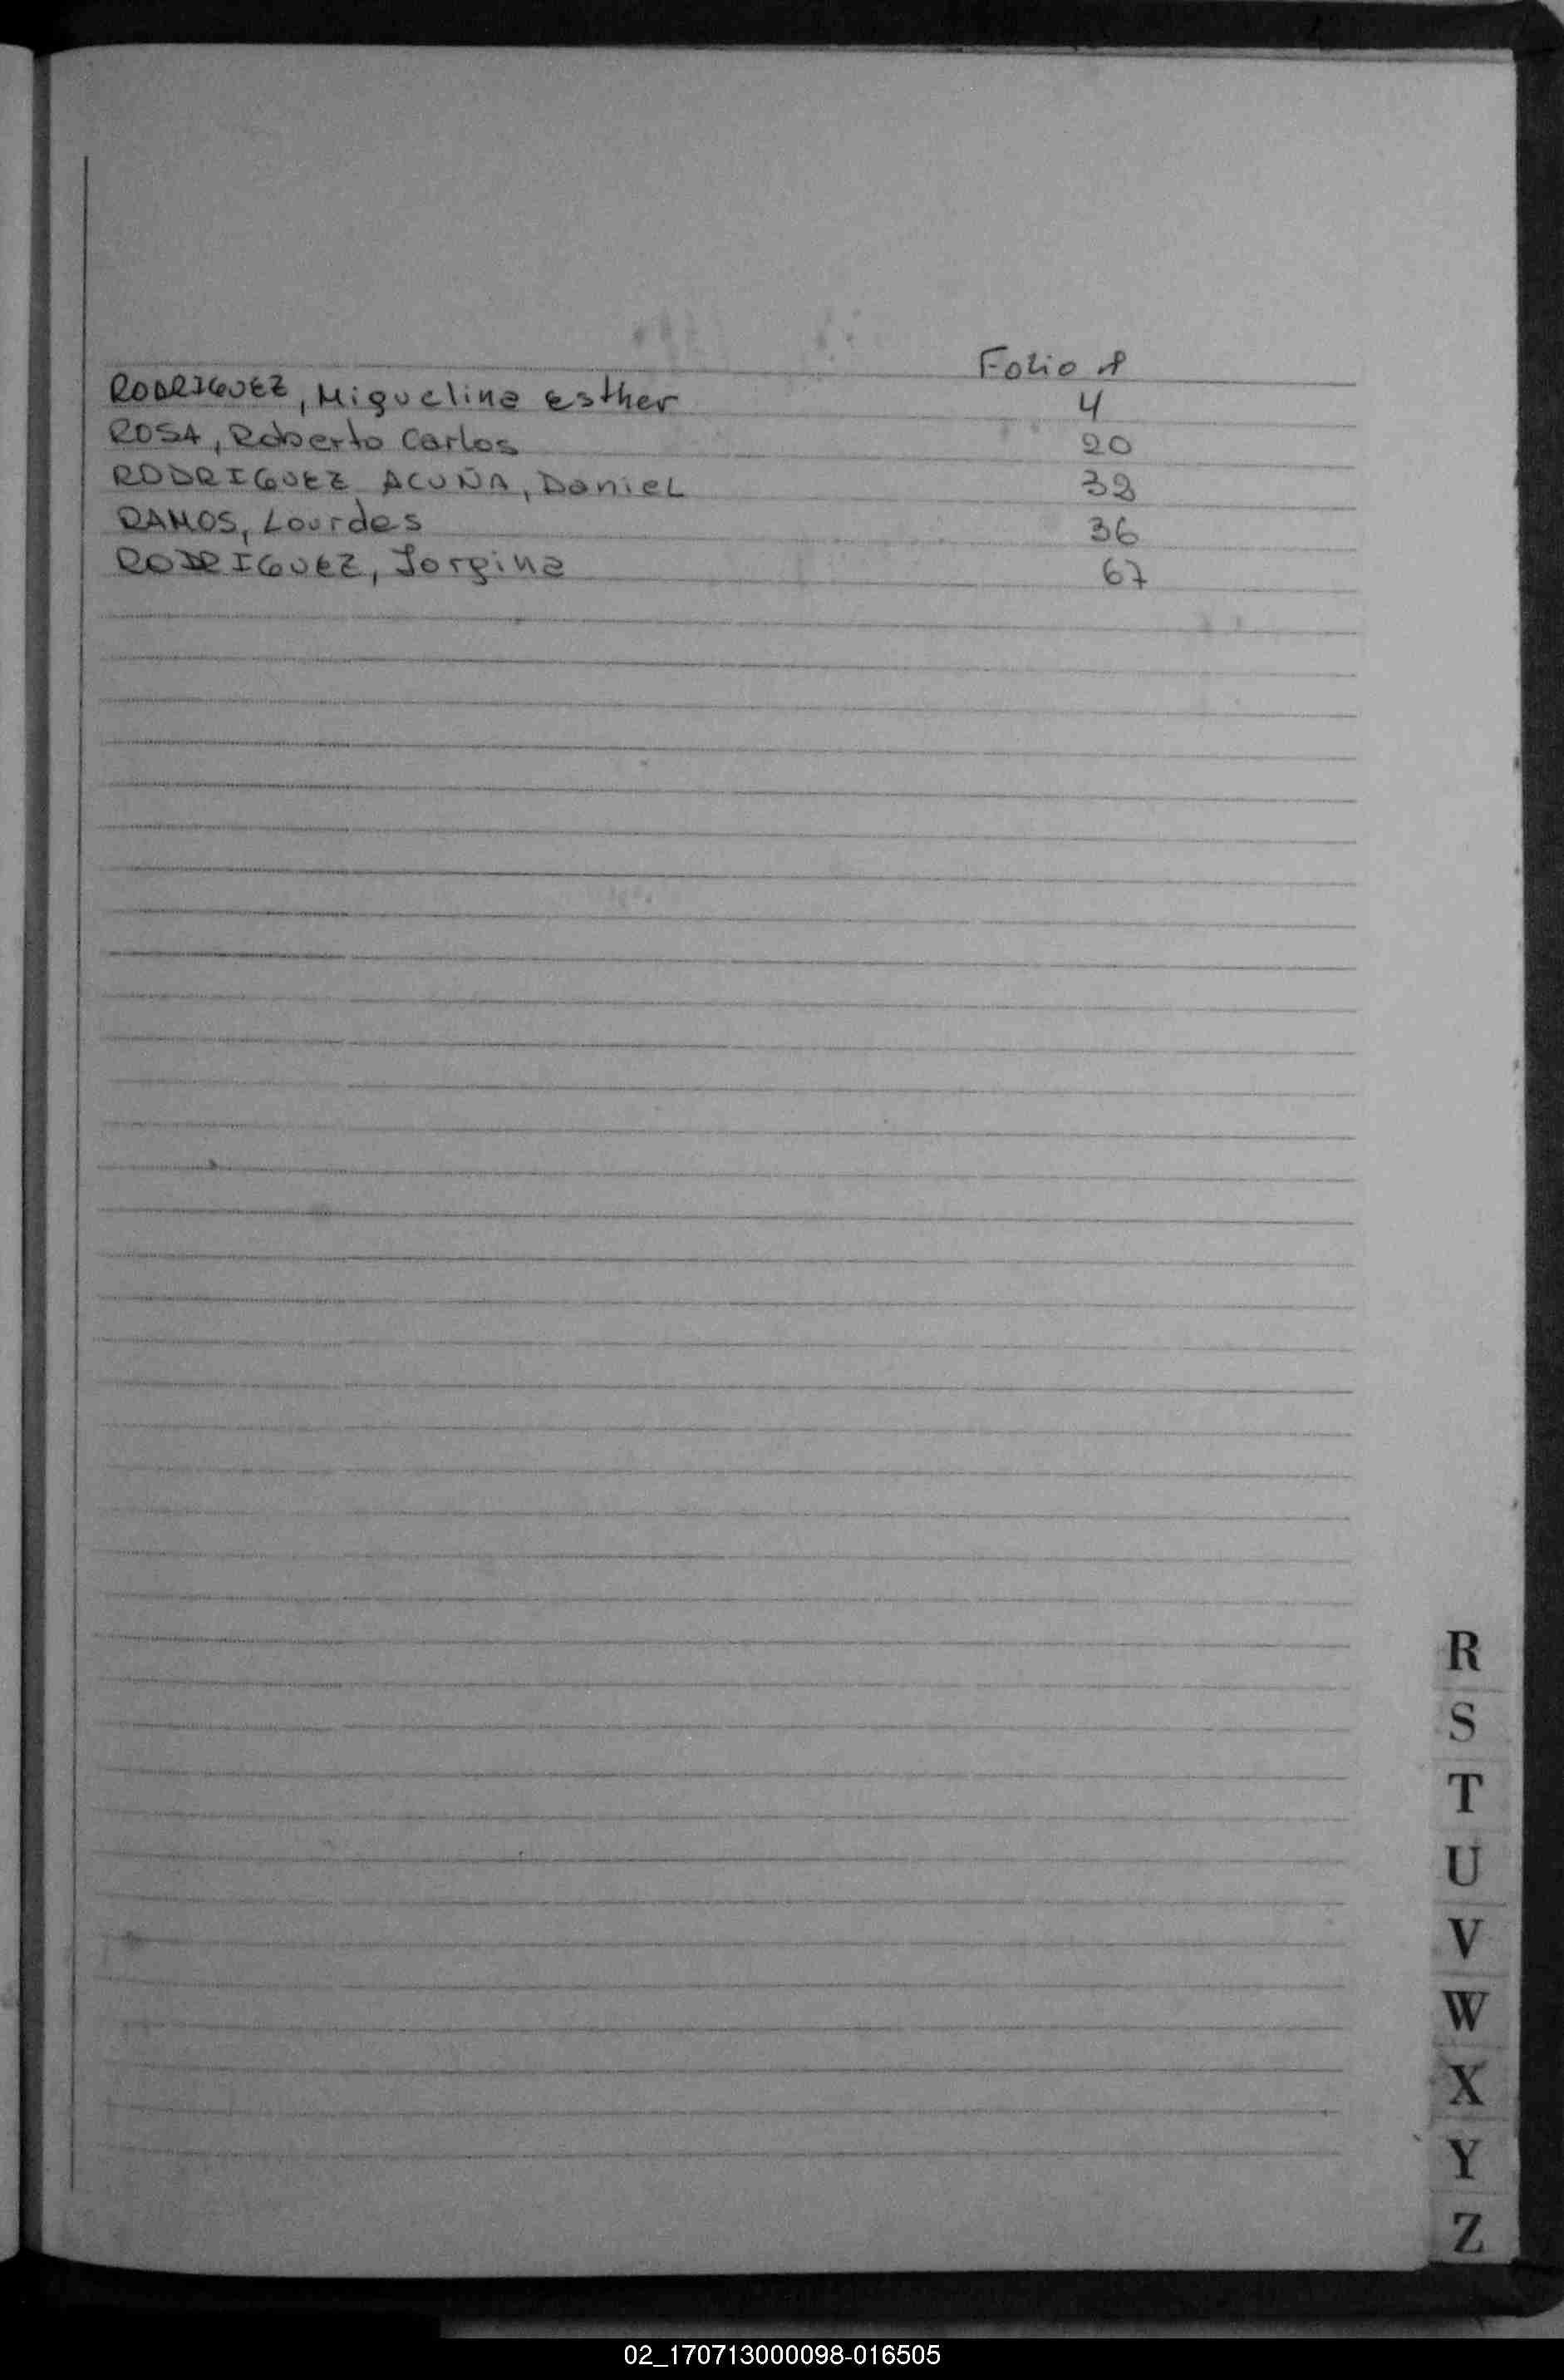 Folio #
RODRIGUEZ, Miguelina Esther 4
ROSA, Roberto Carlos 20
RODRIGUEZ ACUÑA, Daniel 32
RAMOS, Lourdes 36
RODRIGUEZ, Jorgina 67
R
S
T
U
V
W
X
Y
Z
02_170713000098-016505